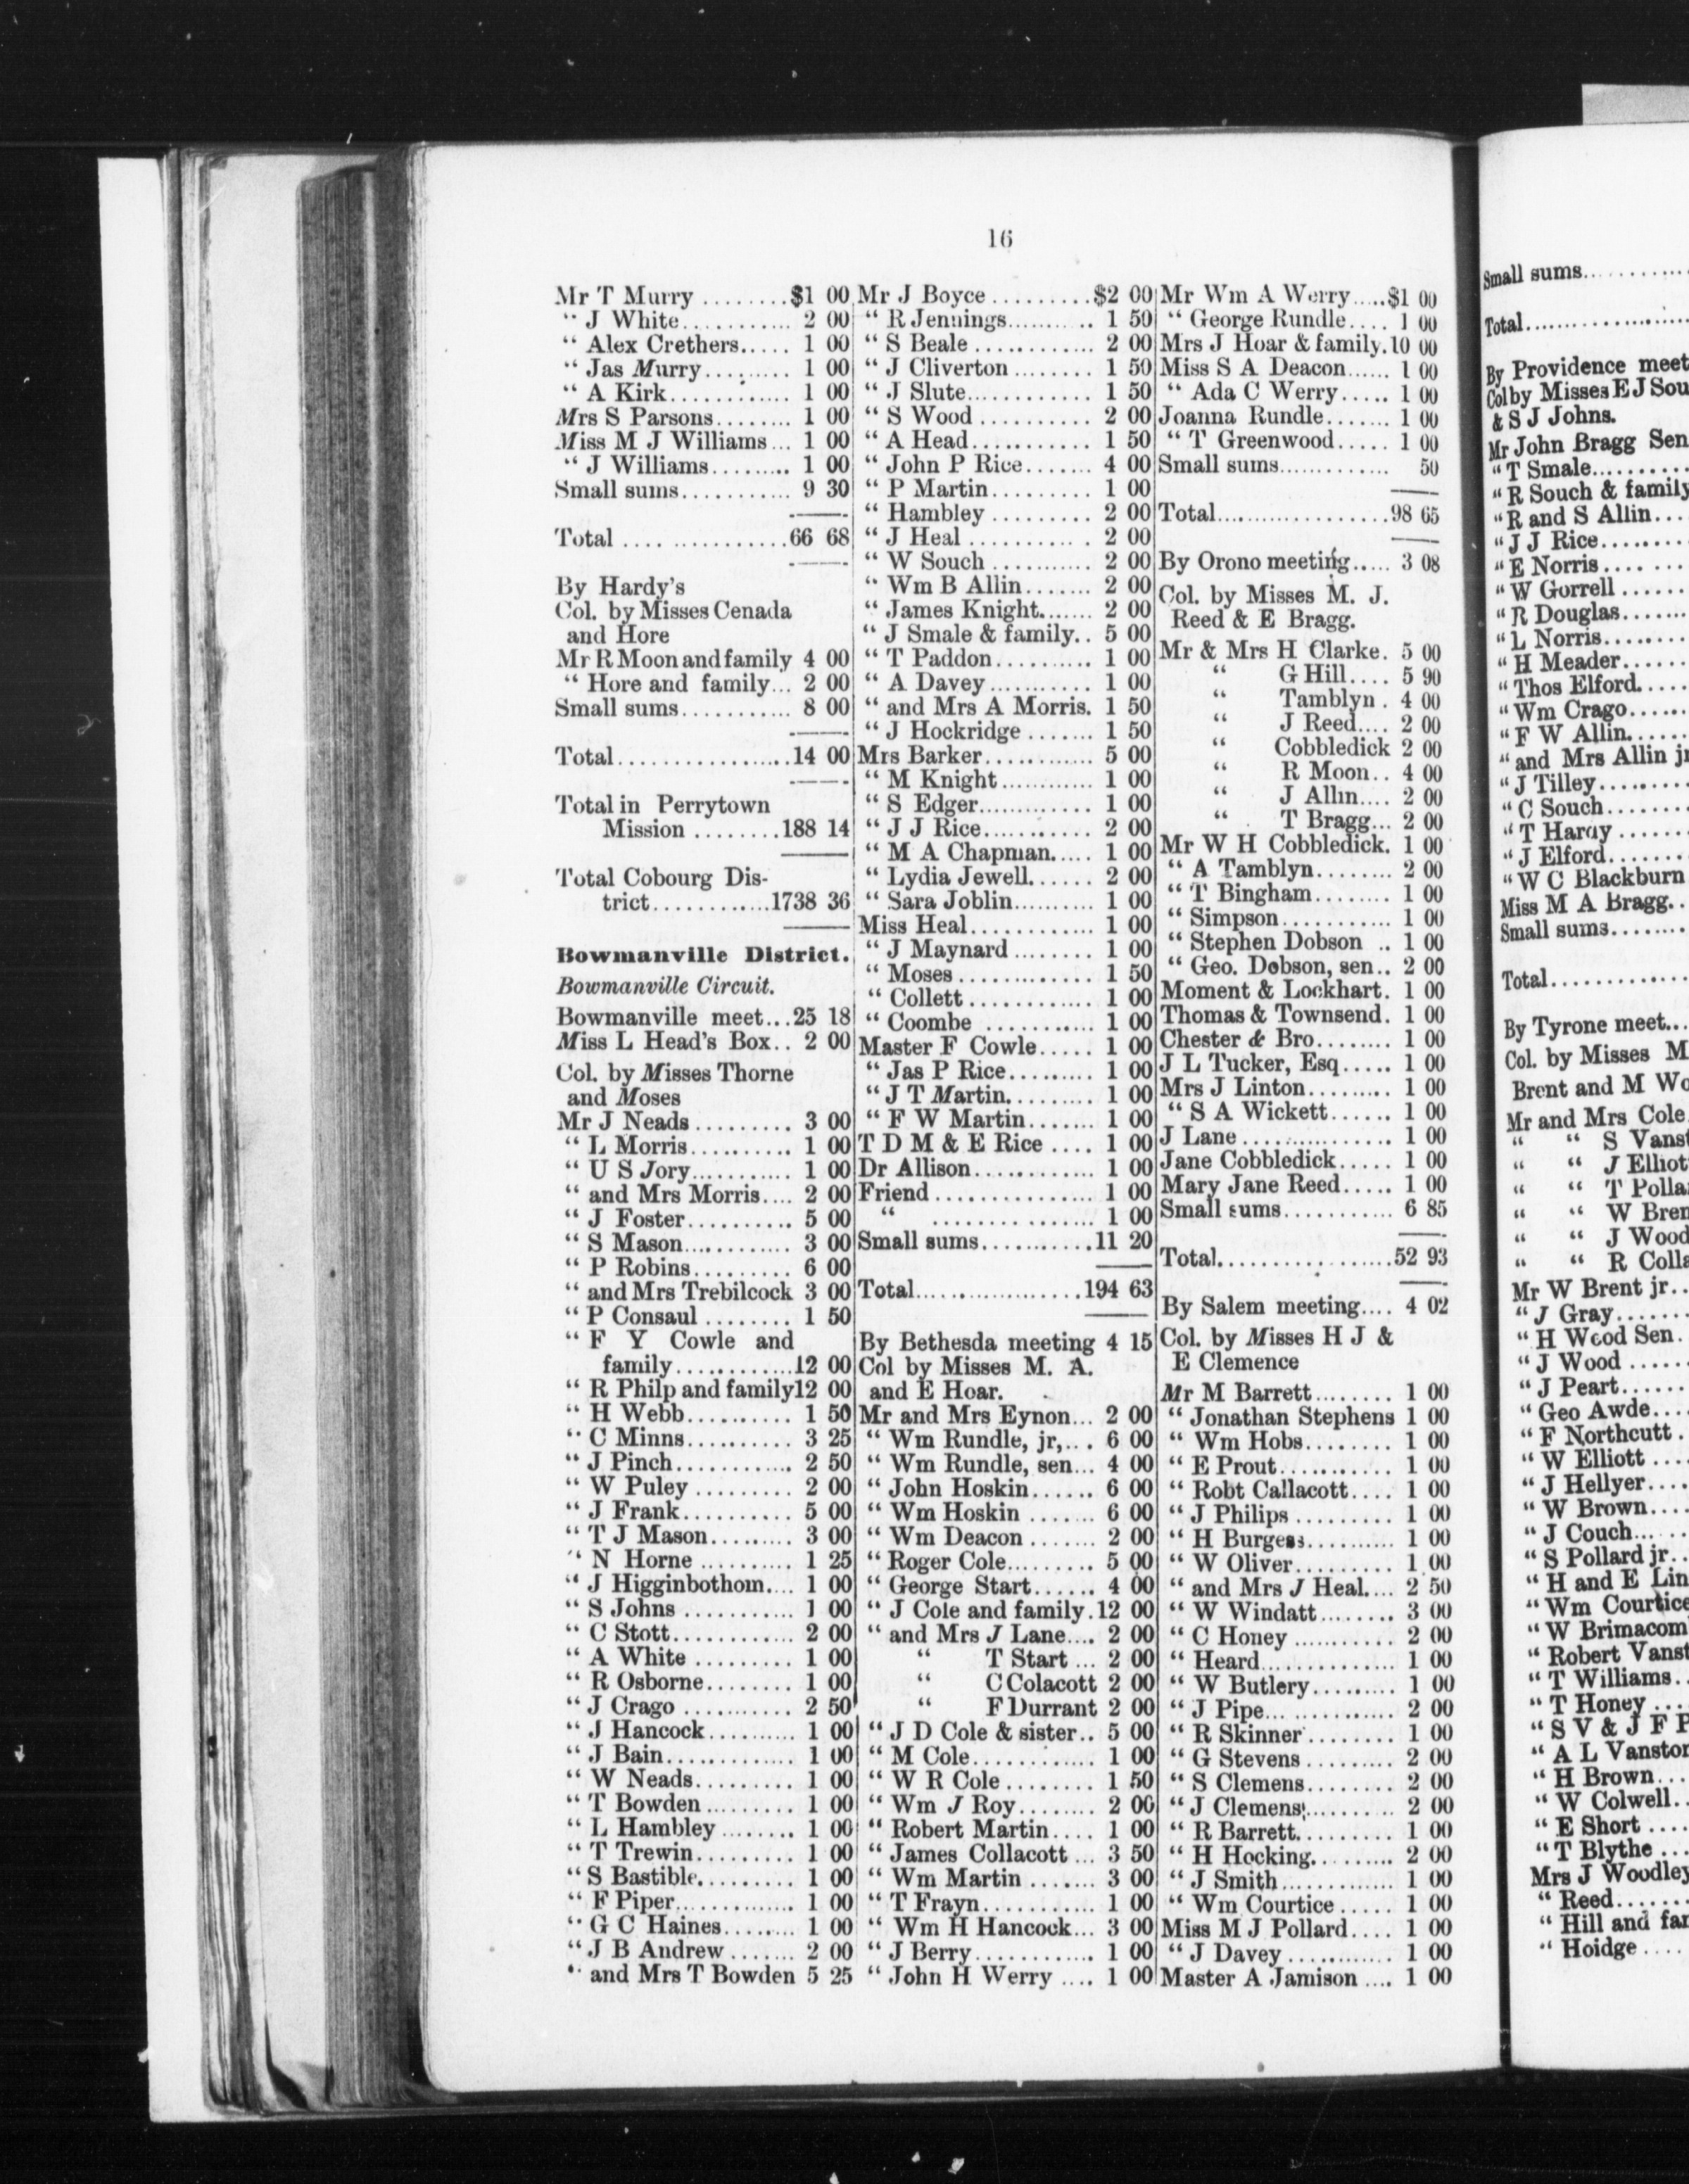 16
Mr T Murry ........$1 00
" J White........... 2 00
" Alex Crethers..... 1 00
" Jas Murry......... 1 00
" A Kirk............ 1 00
Mrs S Parsons........ 1 00
Miss M J Williams... 1 00
" J Williams......... 1 00
Small sums........... 9 30
Total .... ............66 68
By Hardy's
Col. by Misses Cenada
and Hore
Mr R Moon and family 4 00
" Hore and family... 2 00
Small sums........... 8 00
Total.................14 00
Total in Perrytown
Mission ........188 14
Total Cobourg Dis-
trict............1738 36
Bowmanville District.
Bowmanville Circuit.
Bowmanville meet...25 18
Miss L Head's Box.. 2 00
Col. by Misses Thorne
and Moses
Mr J Neads ......... 3 00
" L Morris.......... 1 00
" U S Jory........... 1 00
" and Mrs Morris.... 2 00
" J Foster.......... 5 00
" S Mason........... 3 00
" P Robins.......... 6 00
" and Mrs Trebilcock 3 00
" P Consaul ........ 1 50
" F Y Cowle and
family............12 00
" R Philp and family12 00
" H Webb.......... 1 50
" C Minns.......... 3 25
" J Pinch........... 2 50
" W Puley ......... 2 00
" J Frank.......... 5 00
" T J Mason......... 3 00
" N Horne .......... 1 25
" J Higginbothom.... 1 00
" S Johns ........... 1 00
" C Stott............ 2 00
" A White ......... 1 00
" R Osborne........ 1 00
" J Crago ........... 2 50
" J Hancock.......... 1 00
" J Bain............. 1 00
" W Neads.......... 1 00
" T Bowden ......... 1 00
" L Hambley ........ 1 00
" T Trewin.......... 1 00
" S Bastible......... 1 00
" F Piper............. 1 00
" G C Haines........ 1 00
" J B Andrew ....... 2 00
" and Mrs T Bowden 5 25
Mr J Boyce .........$2 00
" R Jennings.......... 1 50
" S Beale ............ 2 00
" J Cliverton ........ 1 50
" J Slute............ 1 50
" S Wood ........... 2 00
" A Head............ 1 50
" John P Rice....... 4 00
" P Martin.......... 1 00
" Hambley .......... 2 00
" J Heal ............ 2 00
" W Souch ........... 2 00
" Wm B Allin....... 2 00
" James Knight....... 2 00
" J Smale & family.. 5 00
" T Paddon.......... 1 00
" A Davey........... 1 00
" and Mrs A Morris. 1 50
" J Hockridge ....... 1 50
Mrs Barker............ 5 00
" M Knight............ 1 00
" S Edger............. 1 00
" J J Rice............ 2 00
" M A Chapman..... 1 00
" Lydia Jewell...... 2 00
" Sara Joblin.......... 1 00
Miss Heal............. 1 00
" J Maynard ........ 1 00
" Moses ............. 1 50
" Collett ............ 1 00
" Coombe ........... 1 00
Master F Cowle..... 1 00
" Jas P Rice......... 1 00
" J T Martin......... 1 00
" F W Martin....... 1 00
T D M & E Rice .... 1 00
Dr Allison............ 1 00
Friend ................ 1 00
" ................ 1 00
Small sums...........11 20
Total..................194 63
By Bethesda meeting 4 15
Col by Misses M. A.
and E Hoar.
Mr and Mrs Eynon... 2 00
" Wm Rundle, jr,... 6 00
" Wm Rundle, sen... 4 00
" John Hoskin...... 6 00
" Wm Hoskin ....... 6 00
" Wm Deacon ....... 2 00
" Roger Cole......... 5 00
" George Start...... 4 00
" J Cole and family.12 00
" and Mrs J Lane.... 2 00
" T Start ... 2 00
" C Colacott 2 00
" F Durrant 2 00
" J D Cole & sister.. 5 00
" M Cole............ 1 00
" W R Cole ......... 1 50
" Wm J Roy........ 2 00
" Robert Martin.... 1 00
" James Collacott ... 3 50
" Wm Martin ....... 3 00
" T Frayn........... 1 00
" Wm H Hancock... 3 00
" J Berry............ 1 00
" John H Werry .... 1 00
Mr Wm A Werry.....$1 00
" George Rundle.... 1 00
Mrs J Hoar & family.10 00
Miss S A Deacon...... 1 00
" Ada C Werry..... 1 00
Joanna Rundle....... 1 00
" T Greenwood..... 1 00
Small sums............. 50
Total...................98 65
By Orono meeting..... 3 08
Col. by Misses M. J.
Reed & E Bragg.
Mr & Mrs H Clarke. 5 00
" G Hill.... 5 90
" Tamblyn . 4 00
" J Reed.... 2 00
" Cobbledick 2 00
" R Moon.. 4 00
" J Allin.... 2 00
" T Bragg... 2 00
Mr W H Cobbledick. 1 00
" A Tamblyn........ 2 00
" T Bingham........ 1 00
" Simpson............ 1 00
" Stephen Dobson .. 1 00
" Geo. Dobson, sen.. 2 00
Moment & Lockhart. 1 00
Thomas & Townsend. 1 00
Chester & Bro........ 1 00
J L Tucker, Esq..... 1 00
Mrs J Linton......... 1 00
" S A Wickett...... 1 00
J Lane ................ 1 00
Jane Cobbledick..... 1 00
Mary Jane Reed..... 1 00
Small sums........... 6 85
Total..................52 93
By Salem meeting.... 4 02
Col. by Misses H J &
E Clemence
Mr M Barrett........ 1 00
" Jonathan Stephens 1 00
" Wm Hobs........ 1 00
" E Prout........... 1 00
" Robt Callacott.... 1 00
" J Philips .......... 1 00
" H Burgess.......... 1 00
" W Oliver.......... 1 00
" and Mrs J Heal.... 2 50
" W Windatt........ 3 00
" C Honey ........... 2 00
" Heard.............. 1 00
" W Butlery......... 1 00
" J Pipe... ............ 2 00
" R Skinner ........ 1 00
" G Stevens .......... 2 00
" S Clemens........ 2 00
" J Clemens......... 2 00
" R Barrett.......... 1 00
" H Hocking......... 2 00
" J Smith............. 1 00
" Wm Courtice ..... 1 00
Miss M J Pollard.... 1 00
" J Davey............ 1 00
Master A Jamison .... 1 00
Small sums...........
Total.................
By Providence meet
Col by Misses E J Sou
& S J Johns.
Mr John Bragg Sen
" T Smale..........
" R Souch & family
" R and S Allin....
" J J Rice........
" E Norris.... ....
" W Gorrell ......
" R Douglas.......
" L Norris........
" H Meader......
" Thos Elford.....
" Wm Crago......
" F W Allin......
" and Mrs Allin jr
" J Tilley.........
" C Souch........
" T Hardy .......
" J Elford........
" W C Blackburn
Miss M A Bragg..
Small sums.......
Total...........
By Tyrone meet...
Col. by Misses M
Brent and M Wo
Mr and Mrs Cole
" " S Vanst
" " J Elliot
" " T Polla
" " W Bren
" " J Wood
" " R Colla
Mr W Brent jr..
" J Gray.......
" H Wood Sen.
" J Wood ......
" J Peart.......
" Geo Awde....
" F Northcutt .
" W Elliott ....
" J Hellyer....
" W Brown....
" J Couch... ..
" S Pollard jr..
" H and E Lin
" Wm Courtice
" W Brimacom
" Robert Vanst
" T Williams..
" T Honey ....
" S V & J F P
" A L Vanston
" H Brown...
" W Colwell..
" E Short ....
" T Blythe ...
Mrs J Woodley
" Reed.......
" Hill and far
" Hoidge ....